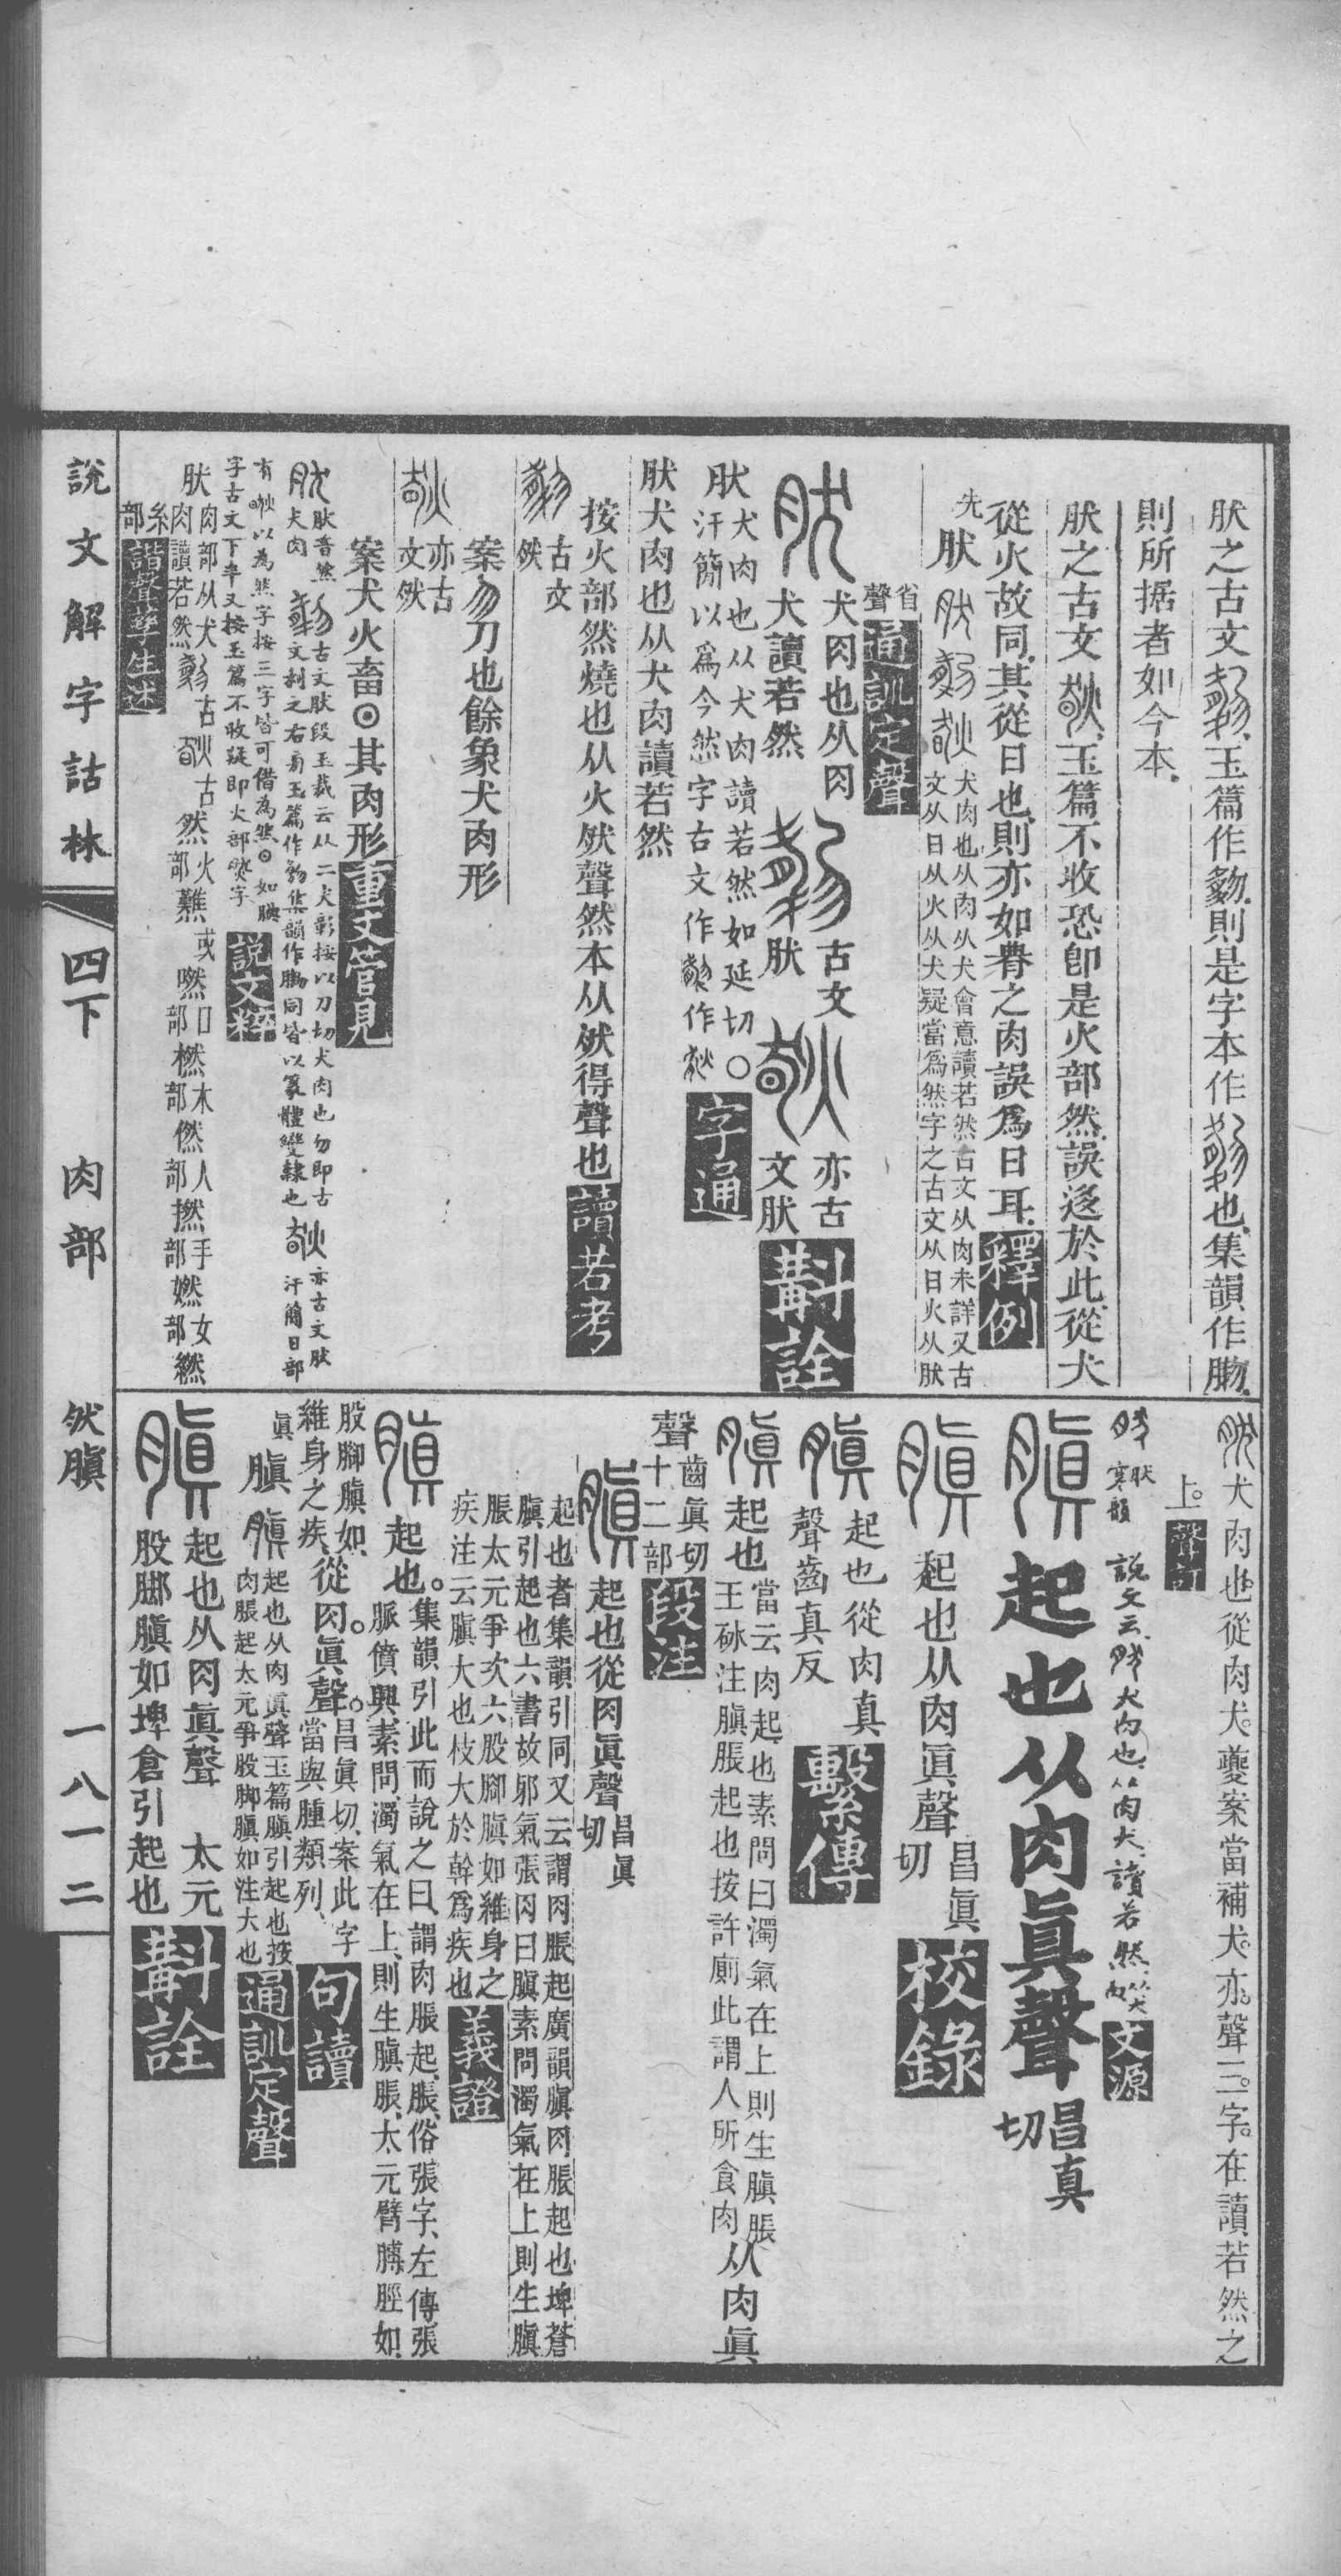 肰之古文、玉篇作𦟛則是字本作也、集韻作肳、
則所据者如今本、
肰之古文、玉篇不收恐卽是火部然誤迻於此、從犬
從火故同、其從日也、則亦如脊之肉誤爲日耳、釋例
先肰
犬肉也从肉从犬會意讀若然古文从肉未詳又古
文从日从火从犬疑當爲然字之古文从日火从肰
省聲通訓定聲
犬肉也从肉犬讀若然
古文肰
亦古文肰
斠詮
肰犬肉也从犬肉讀若然如延切○
汗簡以爲今然字古文作作字通
肰犬肉也从犬肉讀若然
按火部然燒也从火肰聲然本从肰得聲也讀若考
古文肰
案勿刀也餘象犬肉形
亦古文肰
案犬火畜⊙其肉形重文管見
肰音然犬肉
古文肰段玉裁云从二犬彰按以刀切犬肉也勿即古
文利之右旁玉篇作集韻作同皆以篆體變隸也
亦古文肰汗簡日部
有以為然字按三字皆可借為然⊙如
字古文下率又按玉篇不收疑即火部字說文粹
肰肉部从犬肉讀若然
古古然火部難或嘫口部橪木部㒄人部撚手部嬿女部繎
糸部諧聲孳生述
犬肉也、從肉犬。夔案當補犬亦聲三字。在讀若然之
上。聲訂
肰寒韻
說文云、犬肉也、从肉犬、讀若然、文源
起也从肉眞聲昌真切
起也从肉眞聲昌眞切校錄
起也從肉真聲齒真反繫傳
起也當云肉起也素問曰濁氣在上則生䐜脹
王砅注䐜脹起也按許廁此謂人所食肉从肉眞
聲齒眞切十二部段注
起也從肉眞聲昌眞切
起也者集韻引同又云謂肉脹起廣韻䐜肉脹起也埤蒼
䐜引起也六書故邪氣張肉曰䐜素問濁氣在上則生䐜
脹太元爭次六股腳䐜如維身之
疾注云䐜大也枝大於幹爲疾也義證
起也。集韻引此而說之曰、謂肉脹起、脹、俗張字、左傳張
脈僨興、素問、濁氣在上、則生䐜脹、太元臂膊脛如、
股腳䐜如、維身之疾、從肉。眞聲。昌眞切、案此字當與腫類列、句讀
眞䐜
起也从肉眞聲玉篇䐜引起也按
肉脹起太元爭股脚䐜如注大也通訓定聲
起也从肉眞聲　太元
股腳䐜如埤倉引起也斠詮
說文解字詁林
四下　肉部　肰䐜
一八一二